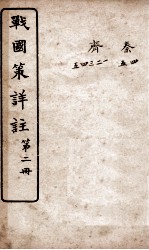 戰國策詳註 第二冊
秦 四 五
齊 一 二 三 四 五